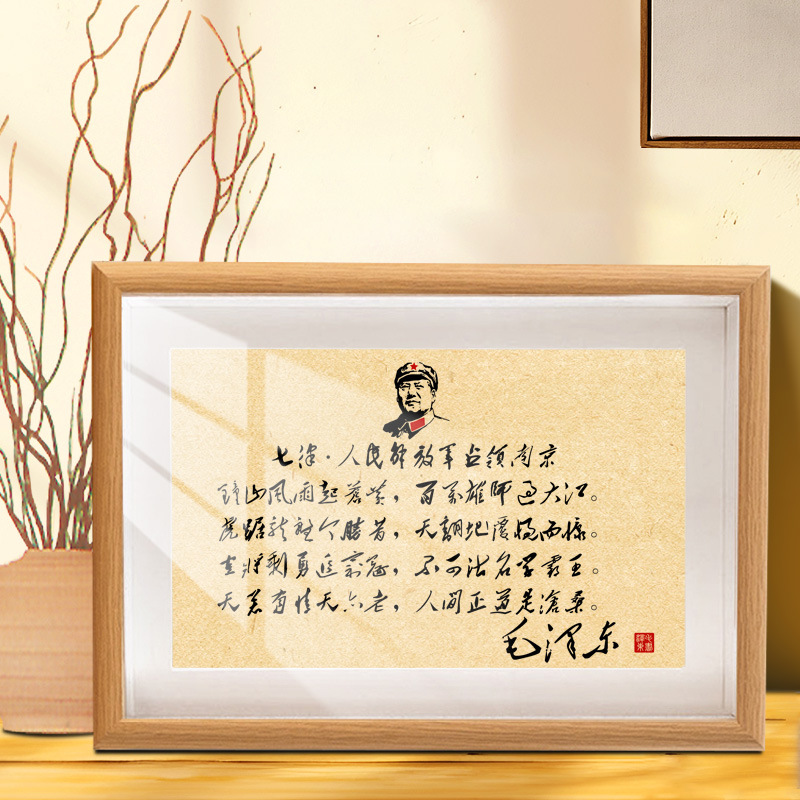 七律·人民解放軍占領南京
鐘山风雨起蒼黄，百万雄師过大江。
虎踞龍盤今勝昔，天翻地覆慨而慷。
宜將剩勇追窮寇，不可沽名学霸王。
天若有情天亦老，人间正道是滄桑。
毛澤东